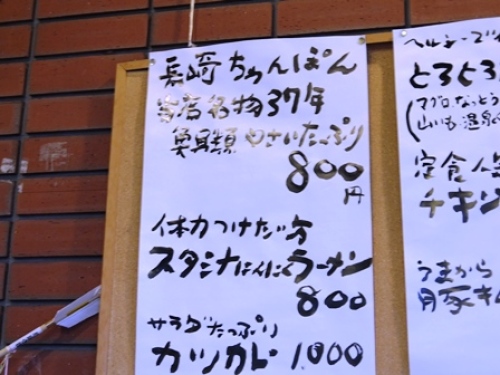 長崎ちゃんぽん
当店名物37年
魚貝類 やさいたっぷり
800
円
体力つけたい方
スタミナにんにくラーメン
800
サラダたっぷり
カツカレー 1000
ヘルシー
とろとろ
(マグロ、なっとう
山いも、温泉
定食
チキン
うまから
豚キム